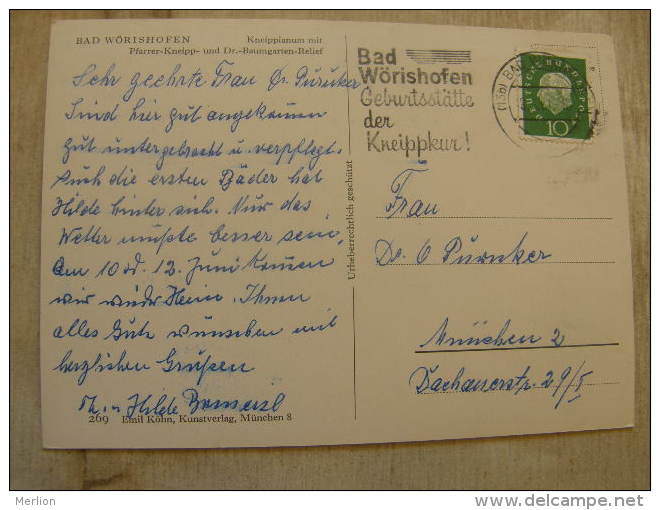 BAD WÖRISHOFEN Kneippianum mit
Pfarrer-Kneipp- und Dr.-Baumgarten-Relief
Sehr geehrte Frau Dr. Purucker
Sind hier gut angekommen
gut untergebracht u. verpflegt.
Auch die ersten Bäder hat
Hilde hinter sich. Nur das
Wetter müßte besser sein,
Am 10 od. 12. Juni kommen
wir wieder Heim. Ihnen
alles Gute wünschen mit
herzlichen Grüßen
Th. u. Hilde
269 Emil Köhn, Kunstverlag, München 8
Urheberrechtlich geschützt
Bad
Wörishofen
Geburtsstätte
der
Kneippkur!
(13b) BAD
DEUTSCHE BUNDESPOST
10
Frau
Dr. O Purucker
München 2
Dachauerstr. 29/I
Merlion
www.delcampe.net